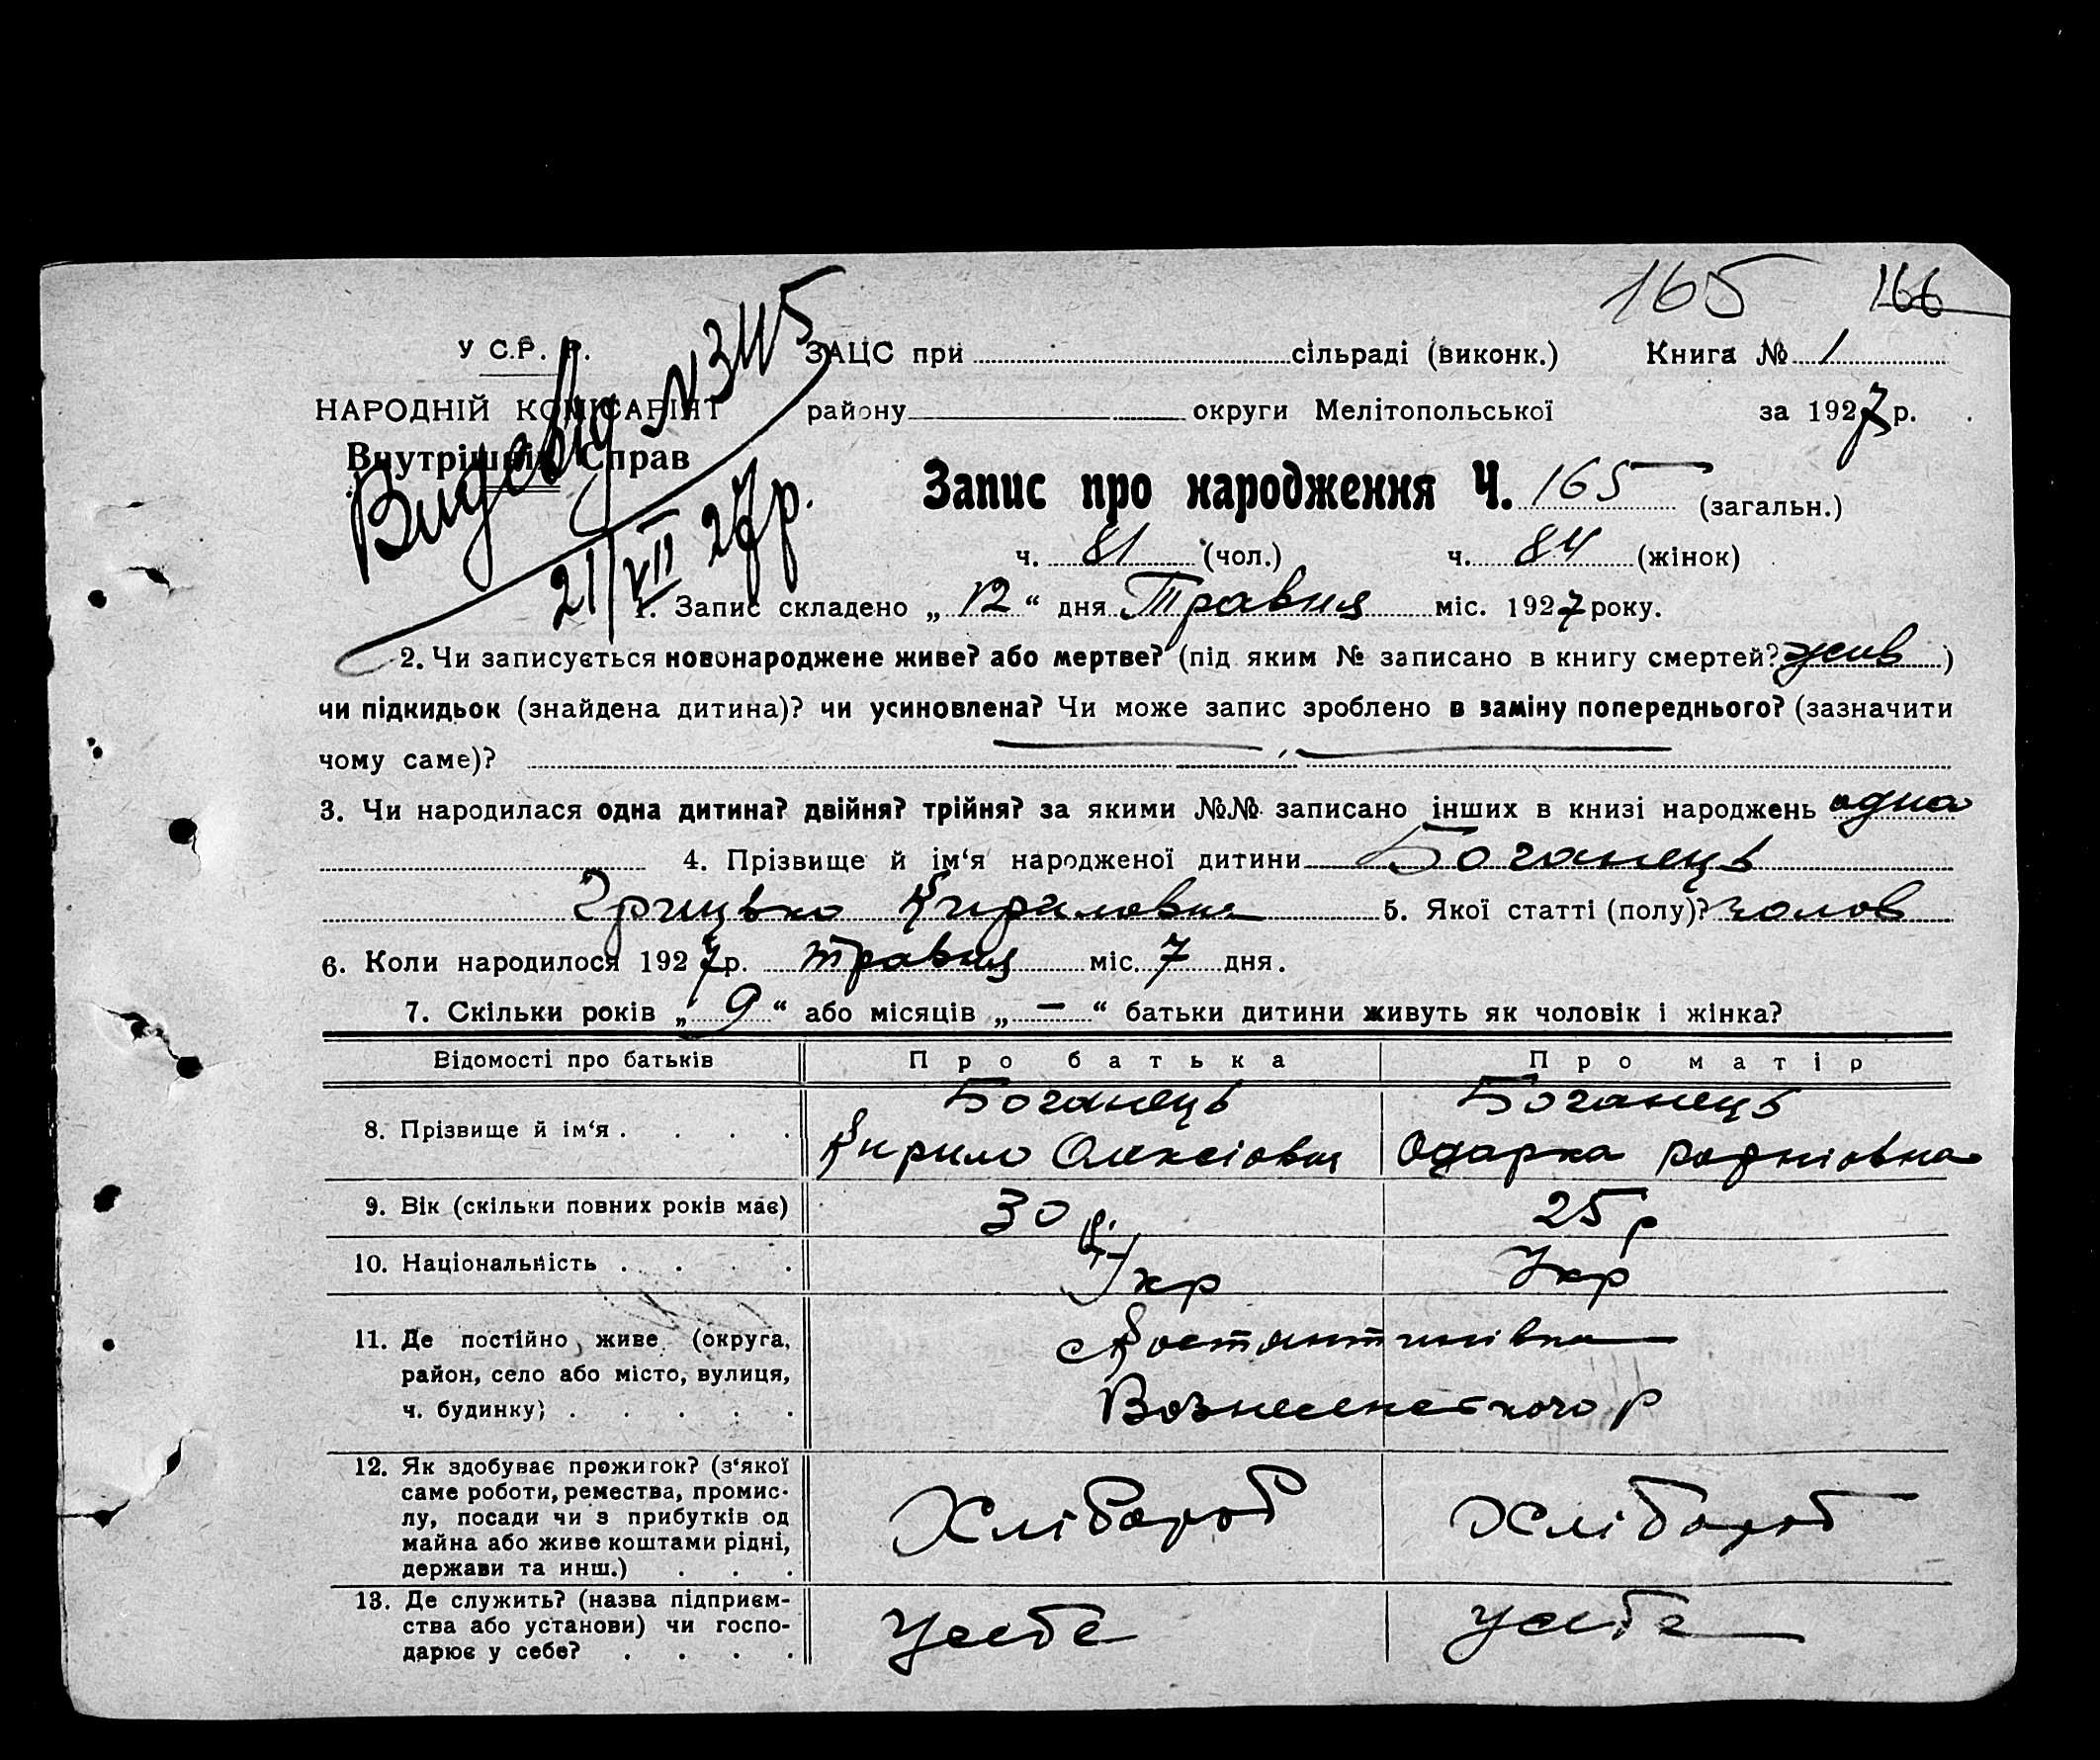 165 166
У С.Р. Р.
ЗАЦС при сільраді (виконк.) Книга № 1
НАРОДНІЙ КОМІСАРІЯТ
району округи Мелітопольської за 1927 р.
Внутрішніх Справ
Видано N 3115
21/VII 27 р.
Запис про народження Ч. 165 (загальн.)
ч. 81 (чол.) ч. 84 (жінок)
1. Запис складено „ 12 “ дня Травня міс. 1927 року.
2. Чи записується новонароджене живе? або мертве? (під яким № записано в книгу смертей? жив )
чи підкидьок (знайдена дитина)? чи усиновлена? Чи може запис зроблено в заміну попереднього? (зазначити
чому саме)?
3. Чи народилася одна дитина? двійня? трійня? за якими №№ записано інших в книзі народжень одна
4. Прізвище й ім‘я народженої дитини Боганець
Грицько Кирилович 5. Якої статті (полу)? чолов
6. Коли народилося 1927 р. травня міс. 7 дня.
7. Скільки років „ 9 “ або місяців „ — “ батьки дитини живуть як чоловік і жінка?
Відомості про батьків Про батька Про матір
8. Прізвище й ім‘я . . . . Боганець Боганець
Кирило Олексіович Одарка Корніовна
9. Вік (скільки повних років має) 30 25 р
10. Національність . . . . Укр Укр
11. Де постійно живе (округа,
район, село або місто, вулиця,
ч. будинку) . . . . .
с Костянтинівка
Вознесенського р
12. Як здобуває прожиток? (з‘якої
саме роботи, ремества, промис-
лу, посади чи з прибутків од
майна або живе коштами рідні,
держави та инш.) . . .
Хлібороб Хлібороб
13. Де служить? (назва підприєм-
ства або установи) чи госпо-
дарює у себе? . . . .
У себе У себе